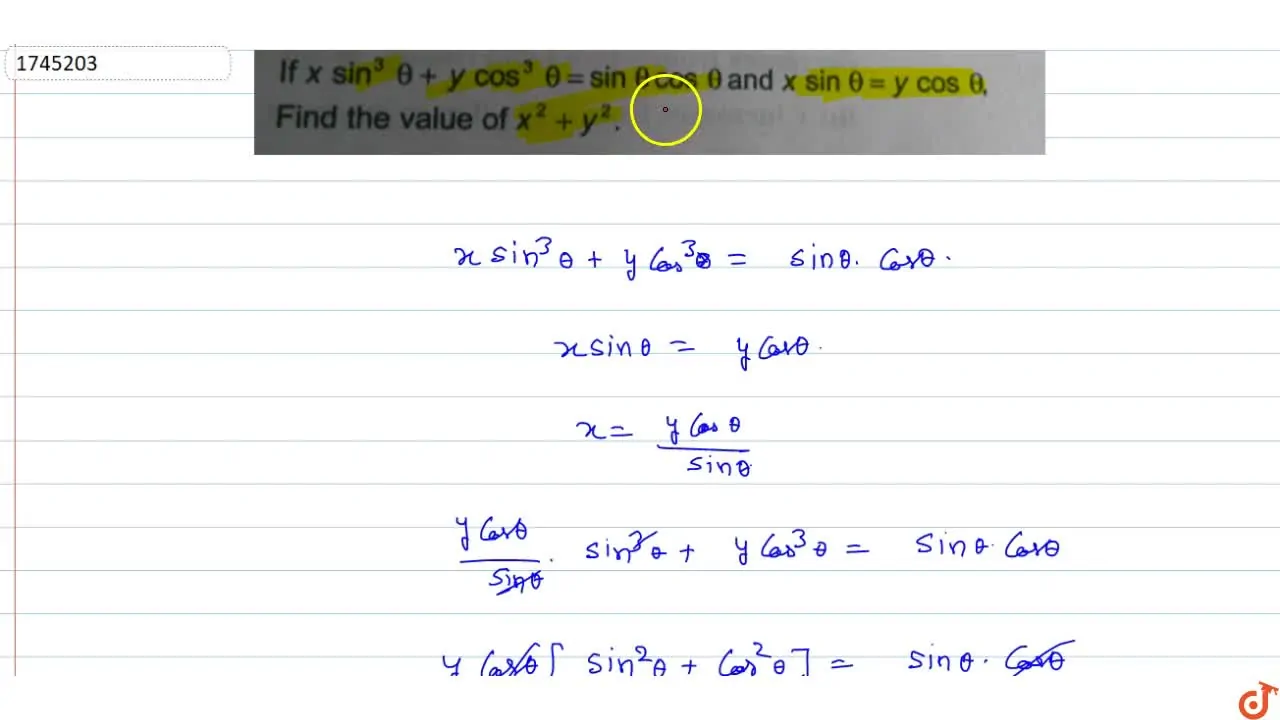 1745203
If x sin³ θ + y cos³ θ = sin θ cos θ and x sin θ = y cos θ,
Find the value of x² + y².
x sin³θ + y Cos³θ = sinθ. Cosθ.
x sinθ = y Cosθ.
x = y Cosθ / sinθ
y Cosθ / sinθ . sin³θ + y Cos³θ = sinθ. Cosθ
y Cosθ [ sin²θ + Cos²θ ] = sinθ. Cosθ